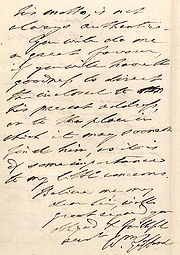 This matter, is not
always authentic.
You will do me
a great favour
if you will have the
goodness to direct
the inclosed to
his present address,
or to the place in
which it may soonest
find him, as it is
of some importance
to my little concerns.
Believe me my
dear Sir with
great regard your
obliged & faithful
servt Wm Gifford